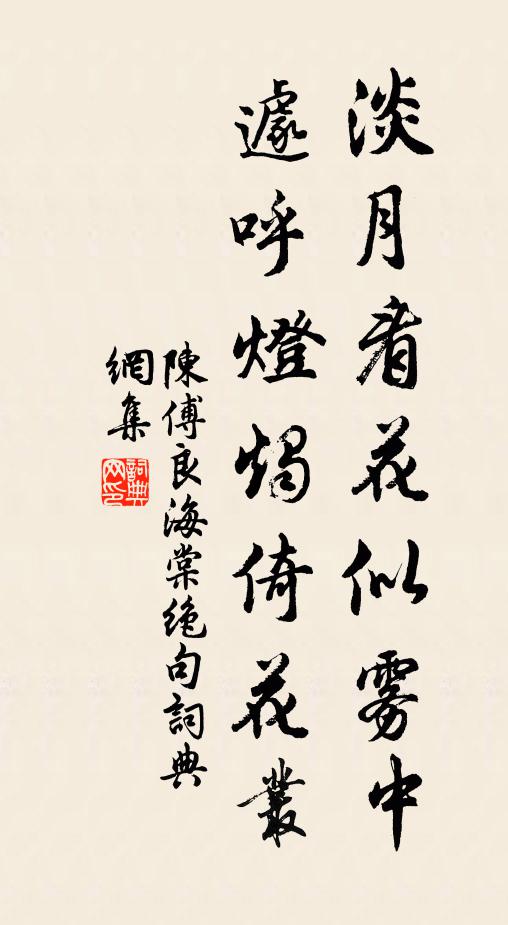 淡月看花似雾中
遽呼燈燭倚花叢
陳傅良海棠绝句詞典
網集
詞典網印